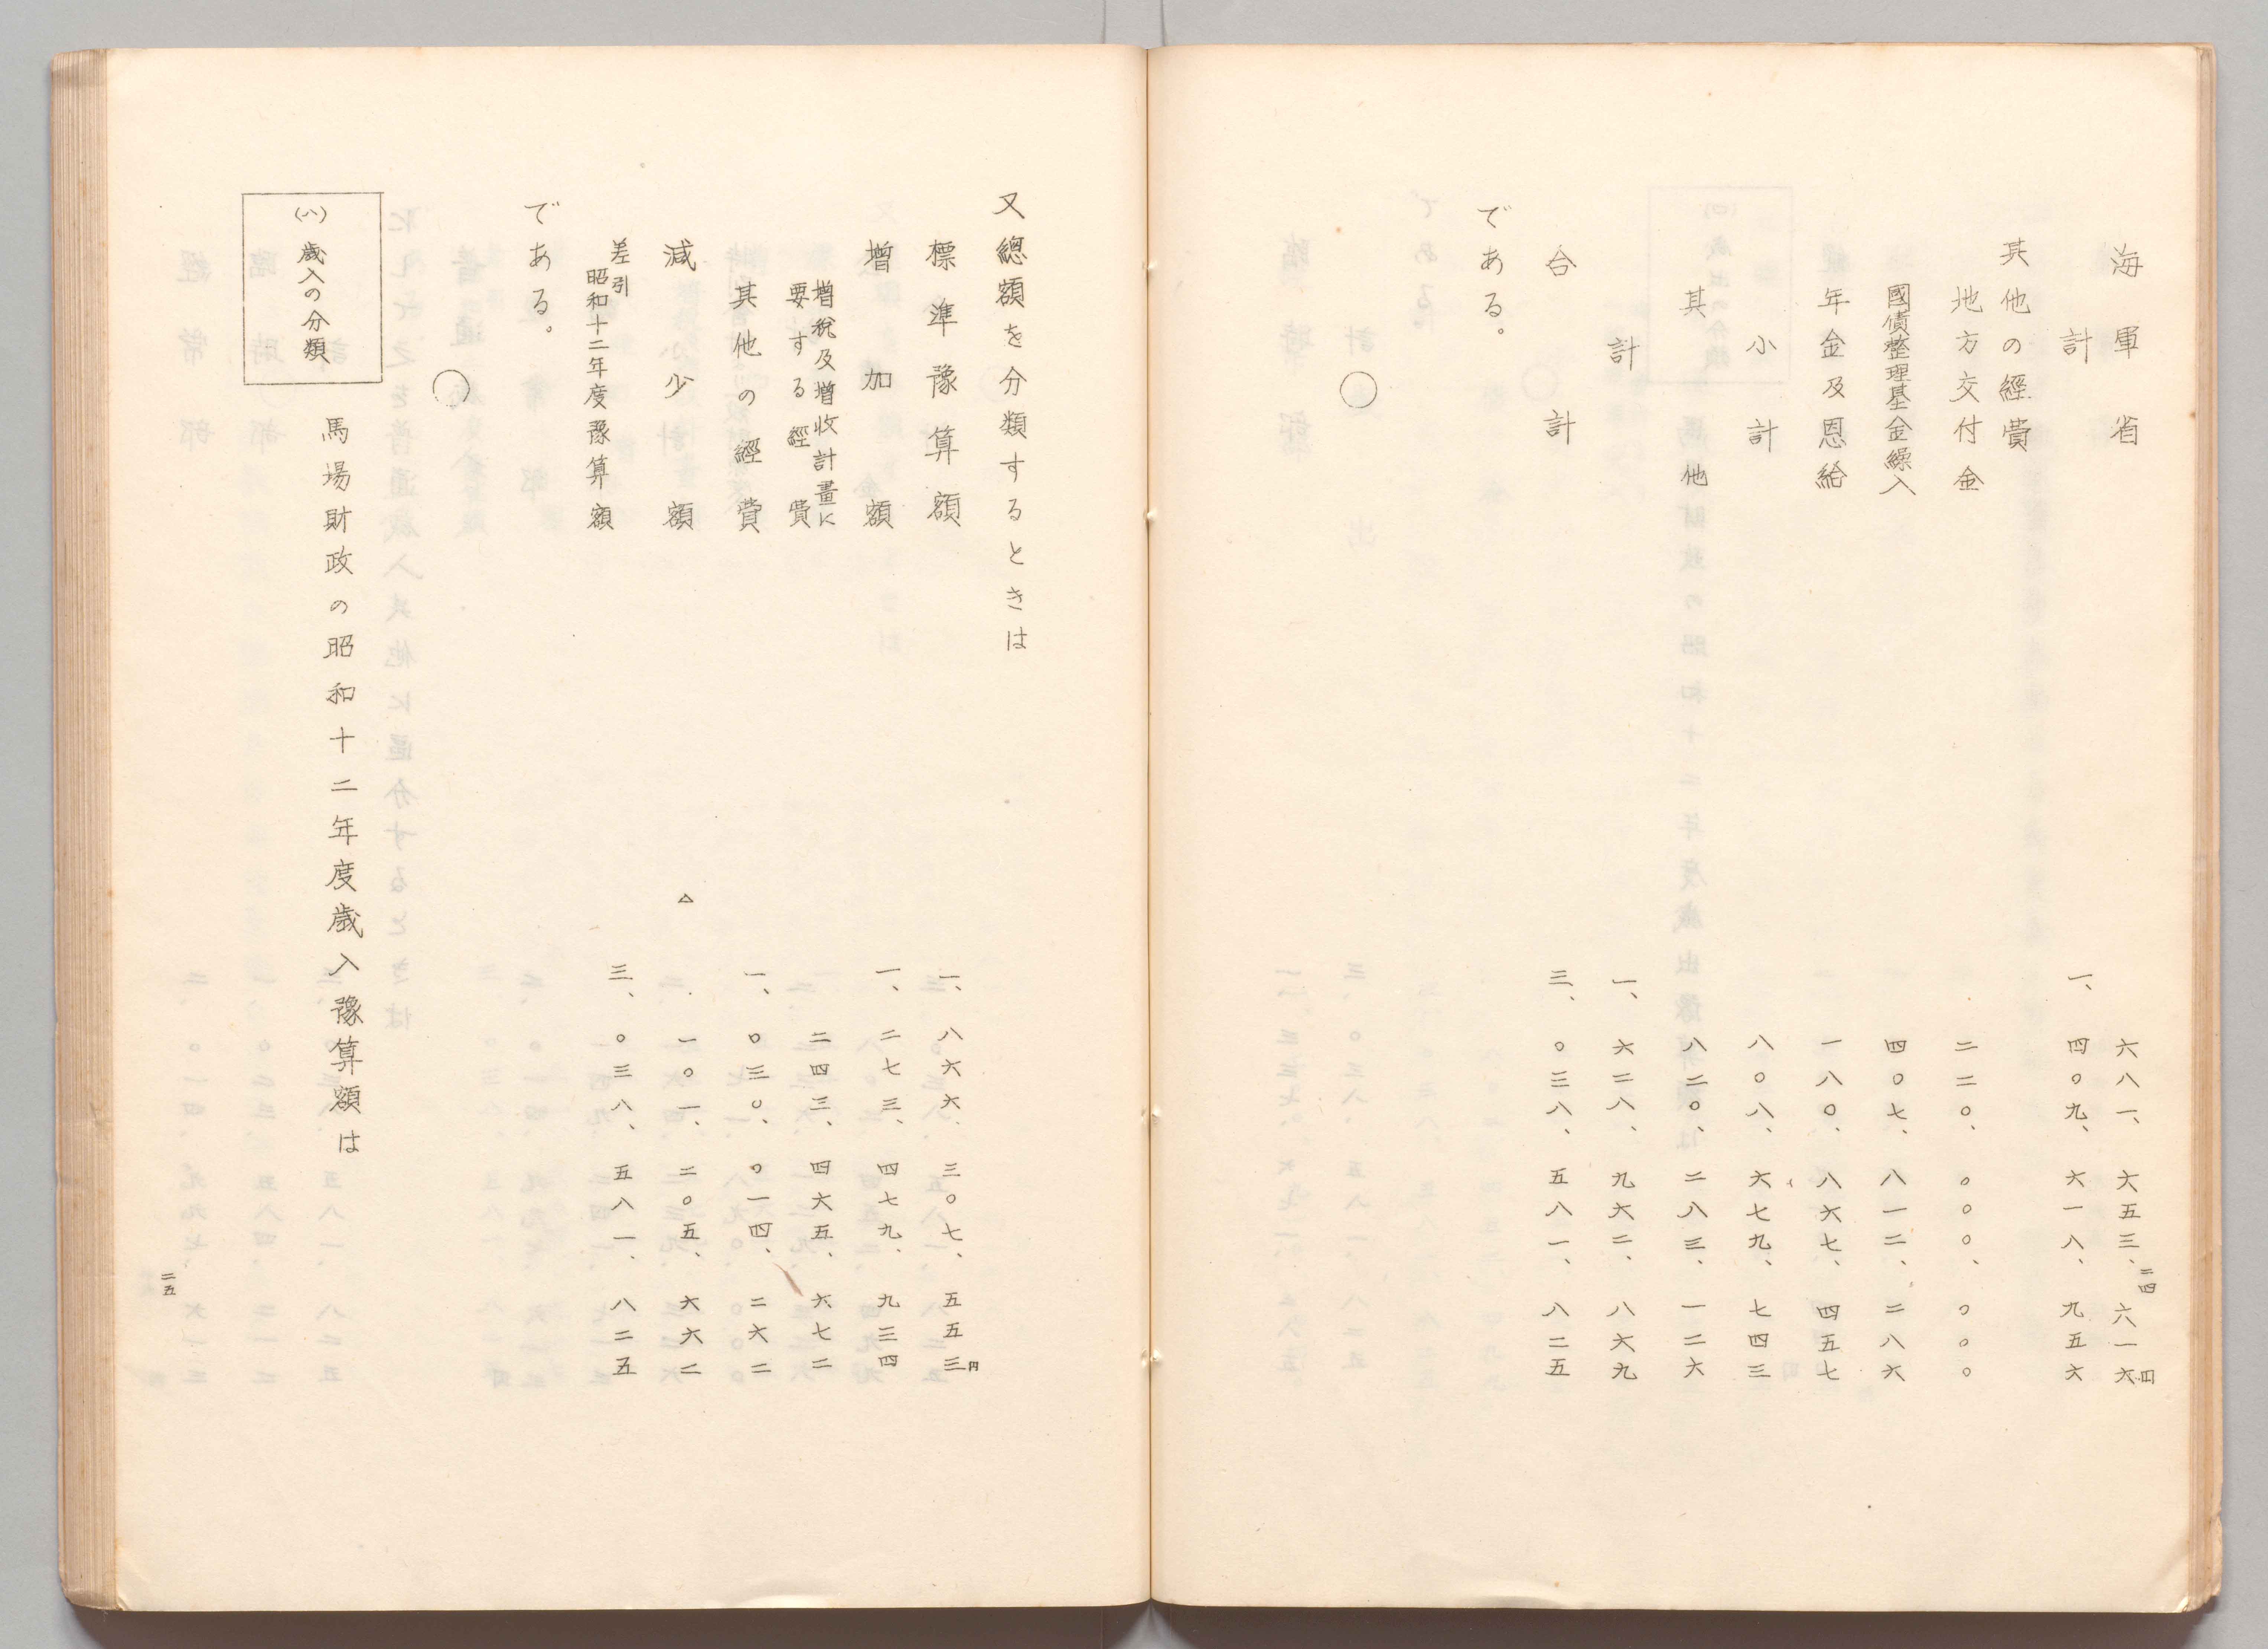 海軍省 六八一、六五三、六一六円
計 一、四〇九、六一八、九五六
其他の經費
地方交付金 二二〇、〇〇〇、〇〇〇
國債整理基金繰入 四〇七、八一二、二八六
年金及恩給 一八〇、八六七、四五七
小計 八〇八、六七九、七四三
其他 八二〇、二八三、一二六
計 一、六二八、九六二、八六九
合計 三、〇三八、五八一、八二五
である。
○
二四
又總額を分類するときは
標準豫算額 一、八六六、三〇七、五五三円
増加額 一、二七三、四七九、九三四
増税及増收計畫に
要する經費 二四三、四六五、六七二
其他の經費 一、〇三〇、〇一四、二六二
減少額 △ 一〇一、二〇五、六六二
差引
昭和十二年度豫算額 三、〇三八、五八一、八二五
である。
○
(八) 歳入の分類
馬場財政の昭和十二年度歳入豫算額は
二五